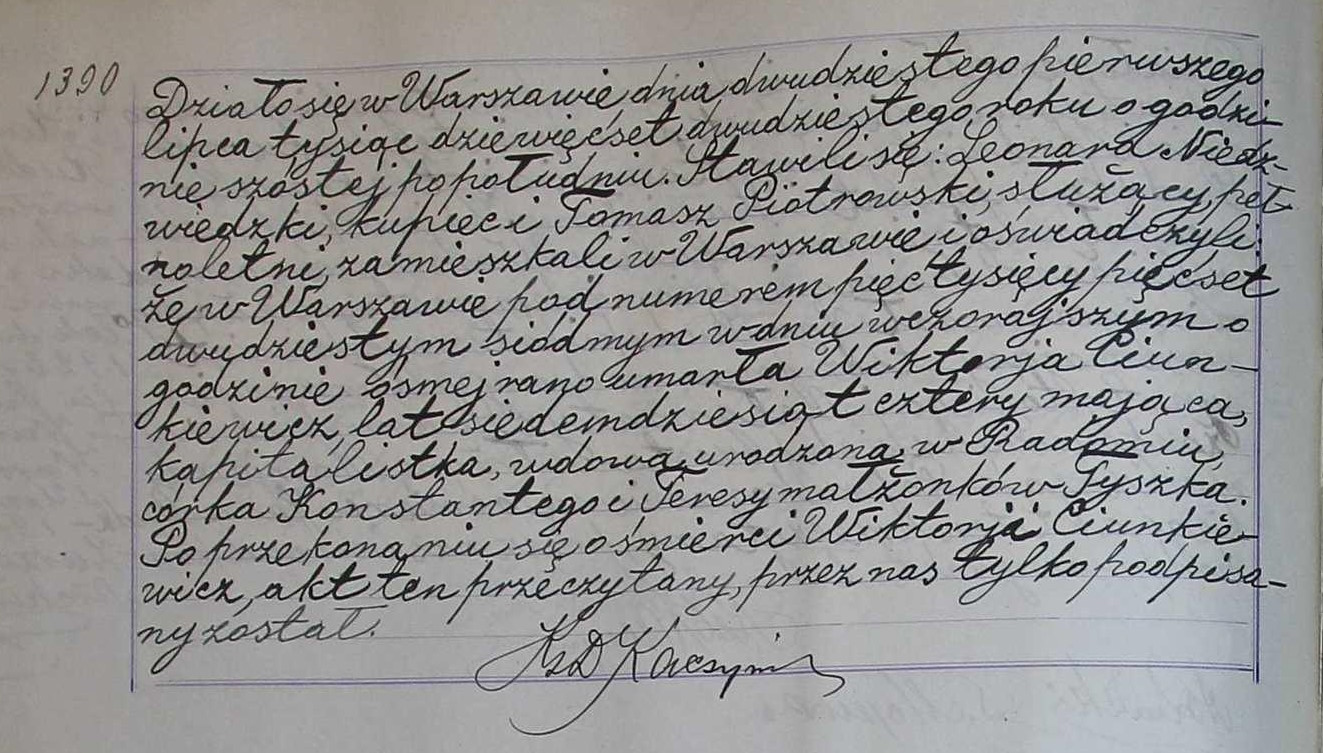 1390
Działo się w Warszawie dnia dwudziestego pierwszego
lipca tysiąc dziewięćset dwudziestego roku o godzi-
nie szóstej popołudniu. Stawili się: Leonard Niedz-
wiedzki, kupiec i Tomasz Piotrowski, służący, peł-
noletni, zamieszkali w Warszawie i oświadczyli:
że w Warszawie pod numerem pięć tysięcy pięćset
dwudziestym siódmym w dniu wczorajszym o
godzinie ósmej rano umarła Wiktorja Ciun-
kiewicz, lat siedemdziesiąt cztery mająca,
kapitalistka, wdowa, urodzona w Radomiu,
córka Konstantego i Teresy małżonków Tyszka.
Po przekonaniu się o śmierci Wiktorji Ciunkie-
wicz, akt ten przeczytany, przez nas tylko podpisa-
ny został.